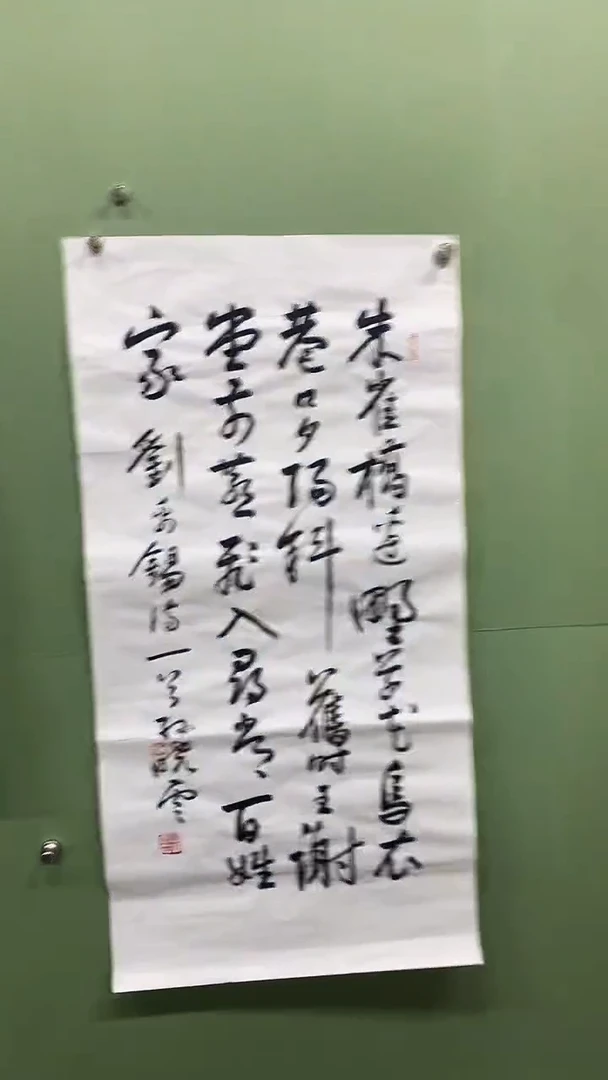 朱雀橋邊野草花烏衣
巷口夕陽斜舊時王謝
堂前燕飛入尋常百姓
家 劉禹錫詩一首 孫曉雲